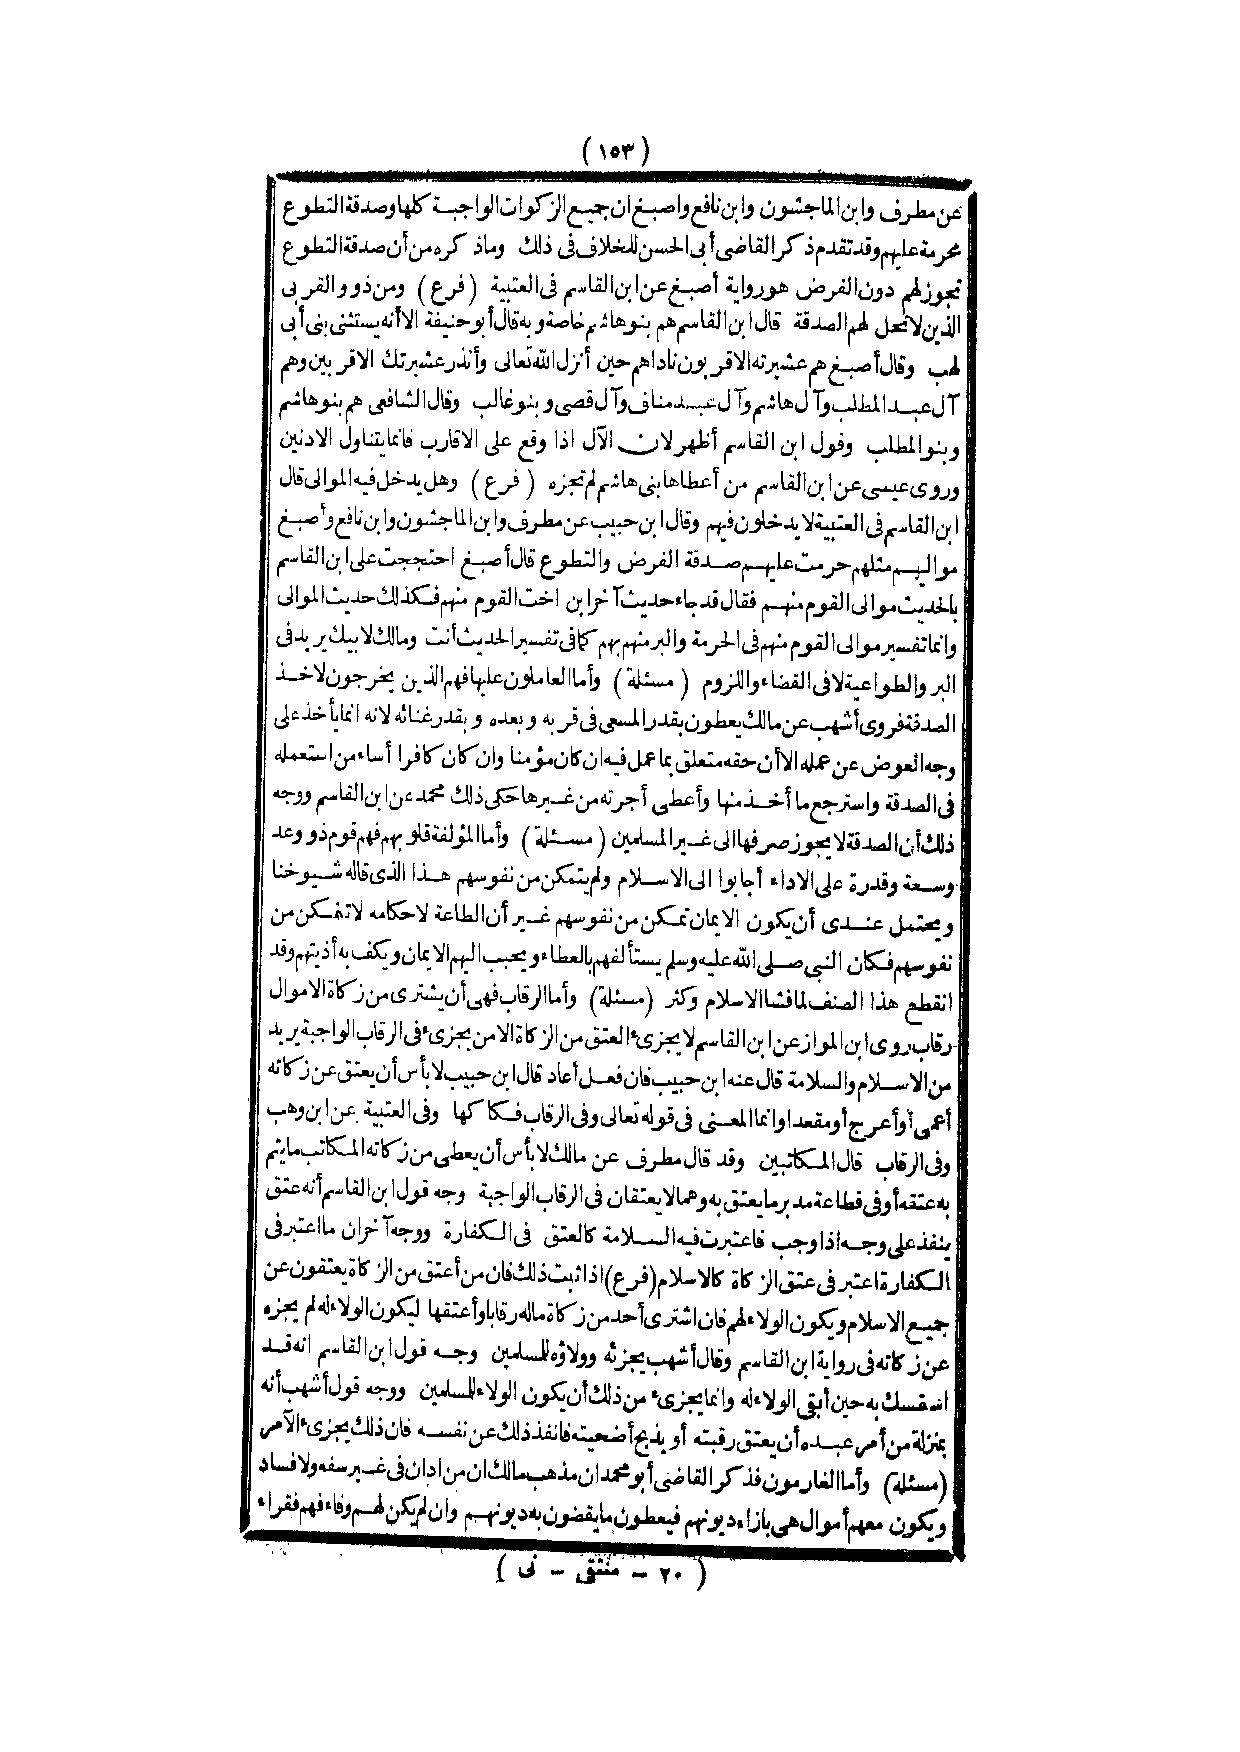 (١٥٣)
عن مطرف وابن الماجشون وابن نافع واصبغ ان جميع الزكوات الواجبة كلها وصدقة التطوع
محرمة عليهم وقد تقدم ذكر القاضى أبى الحسن للخلاف فى ذلك وماذ كره من أن صدقة التطوع
تجوز لهم دون الفرض هو رواية أصبغ عن ابن القاسم فى العتبية (فرع) ومن ذوو القربى
الذين لا تحل لهم الصدقة قال ابن القاسم هم بنو هاشم خاصة وبه قال أبو حنيفة الا أنه يستثنى بنى أبى
لهب وقال أصبغ هم عشيرته الاقربون ناداهم حين أنزل الله تعالى وأنذر عشيرتك الاقربين وهم
آل عبد المطلب وآل هاشم وآل عبد مناف وآل قصى وبنو غالب وقال الشافعى هم بنو هاشم
وبنو المطلب وقول ابن القاسم أظهر لان الآل اذا وقع على الاقارب فانما يتناول الادنين
وروى عيسى عن ابن القاسم من أعطاها بنى هاشم لم تجزه (فرع) وهل يدخل فيه الموالى قال
ابن القاسم فى العتبية لا يدخلون فيهم وقال ابن حبيب عن مطرف وابن الماجشون وابن نافع وأصبغ
مواليهم مثلهم حرمت عليهم صدقة الفرض والتطوع قال أصبغ احتججت على ابن القاسم
بالحديث موالى القوم منهم فقال قد جاء حديث آخر ابن اخت القوم منهم فكذلك حديث الموالى
وانما تفسير موالى القوم منهم فى الحرمة والبر منهم بهم كما فى تفسير الحديث أنت ومالك لابيك يريد فى
البر والطواعية لا فى القضاء واللزوم (مسئلة) وأما العاملون عليها فهم الذين يخرجون لاخذ
الصدقة فروى أشهب عن مالك يعطون بقدر المسعى فى قربه وبعده وبقدر غنائه لانه انما يأخذ على
وجه العوض عن عمله الا أن حقه متعلق بما عمل فيه ان كان مؤمنا وان كان كافرا أساء من استعمله
فى الصدقة واسترجع ما أخذ منها وأعطى أجرته من غيرها حكى ذلك محمد عن ابن القاسم ووجه
ذلك أن الصدقة لا يجوز صرفها الى غير المسلمين (مسئلة) وأما المؤلفة قلوبهم فهم قوم ذوو عد
وسعة وقدرة على الاداء أجابوا الى الاسلام ولم يتمكن من نفوسهم هذا الذى قاله شيوخنا
ويحتمل عندى أن يكون الايمان تمكن من نفوسهم غير أن الطاعة لاحكامه لا تتمكن من
نفوسهم فكان النبى صلى الله عليه وسلم يستألفهم بالعطاء ويحبب اليهم الايمان ويكف به أذيتهم وقد
انقطع هذا الصنف لما فشا الاسلام وكثر (مسئلة) وأما الرقاب فهى أن يشترى من زكاة الاموال
رقاب روى ابن المواز عن ابن القاسم لا يجزىء العتق من الزكاة الا من يجزىء فى الرقاب الواجبة يريد
من الاسلام والسلامة قال عنه ابن حبيب فان فعل أعاد قال ابن حبيب لا بأس أن يعتق عن زكاته
أعمى أو أعرج أو مقعدا وانما المعنى فى قوله تعالى وفى الرقاب فكاكها وفى العتبية عن ابن وهب
وفى الرقاب قال المكاتبين وقد قال مطرف عن مالك لا بأس أن يعطى من زكاته المكاتب ما يتم
به عتقه أو فى قطاعة مدبر ما يعتق به وهما لا يعتقان فى الرقاب الواجبة وجه قول ابن القاسم أنه عتق
ينفذ على وجه اذا وجب فاعتبرت فيه السلامة كالعتق فى الكفارة ووجه آخر ان ما اعتبر فى
الكفارة اعتبر فى عتق الزكاة كالاسلام (فرع) اذا ثبت ذلك فان من أعتق من الزكاة يعتقون عن
جميع الاسلام ويكون الولاء لهم فان اشترى أحد من زكاة ماله رقابا وأعتقها ليكون الولاء له لم يجزه
عن زكاته فى رواية ابن القاسم وقال أشهب يجزئه وولاؤه للمسلمين وجه قول ابن القاسم انه قد
استمسك به حين أبقى الولاء له وانما يجزىء من ذلك أن يكون الولاء للمسلمين ووجه قول أشهب أنه
بمنزلة من أمر عبده أن يعتق رقبته أو يذبح أضحيته فانفذ ذلك عن نفسه فان ذلك يجزىء الآمر
(مسئلة) وأما الغارمون فذكر القاضى أبو محمد ان مذهب مالك ان من ادان فى غير سفه ولا فساد
ويكون معهم أموال هى بازاء ديونهم فيعطون ما يقضون به ديونهم وان لم يكن لهم وفاء فهم فقراء
(٢٠ - منتقى - نى)